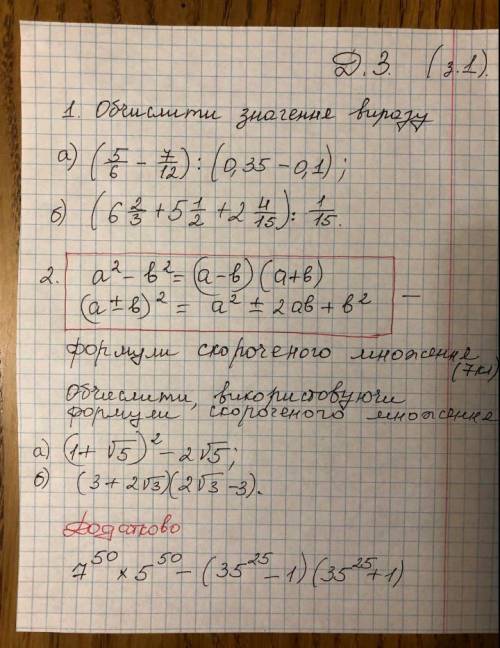 Д.З. (з.1).
1. Обчислити значення виразу
а) (5/6 - 7/12) : (0,35 - 0,1);
б) (6 2/3 + 5 1/2 + 2 4/15) : 1/15.
2. a² - b² = (a-b)(a+b)
(a ± b)² = a² ± 2ab + b² —
формули скороченого множення
(7кл)
Обчислити, використовуючи
формули скороченого множення
а) (1+ √5)² - 2√5;
б) (3 + 2√3)(2√3 - 3).
Додатково
7⁵⁰ × 5⁵⁰ - (35²⁵ - 1)(35²⁵ + 1)